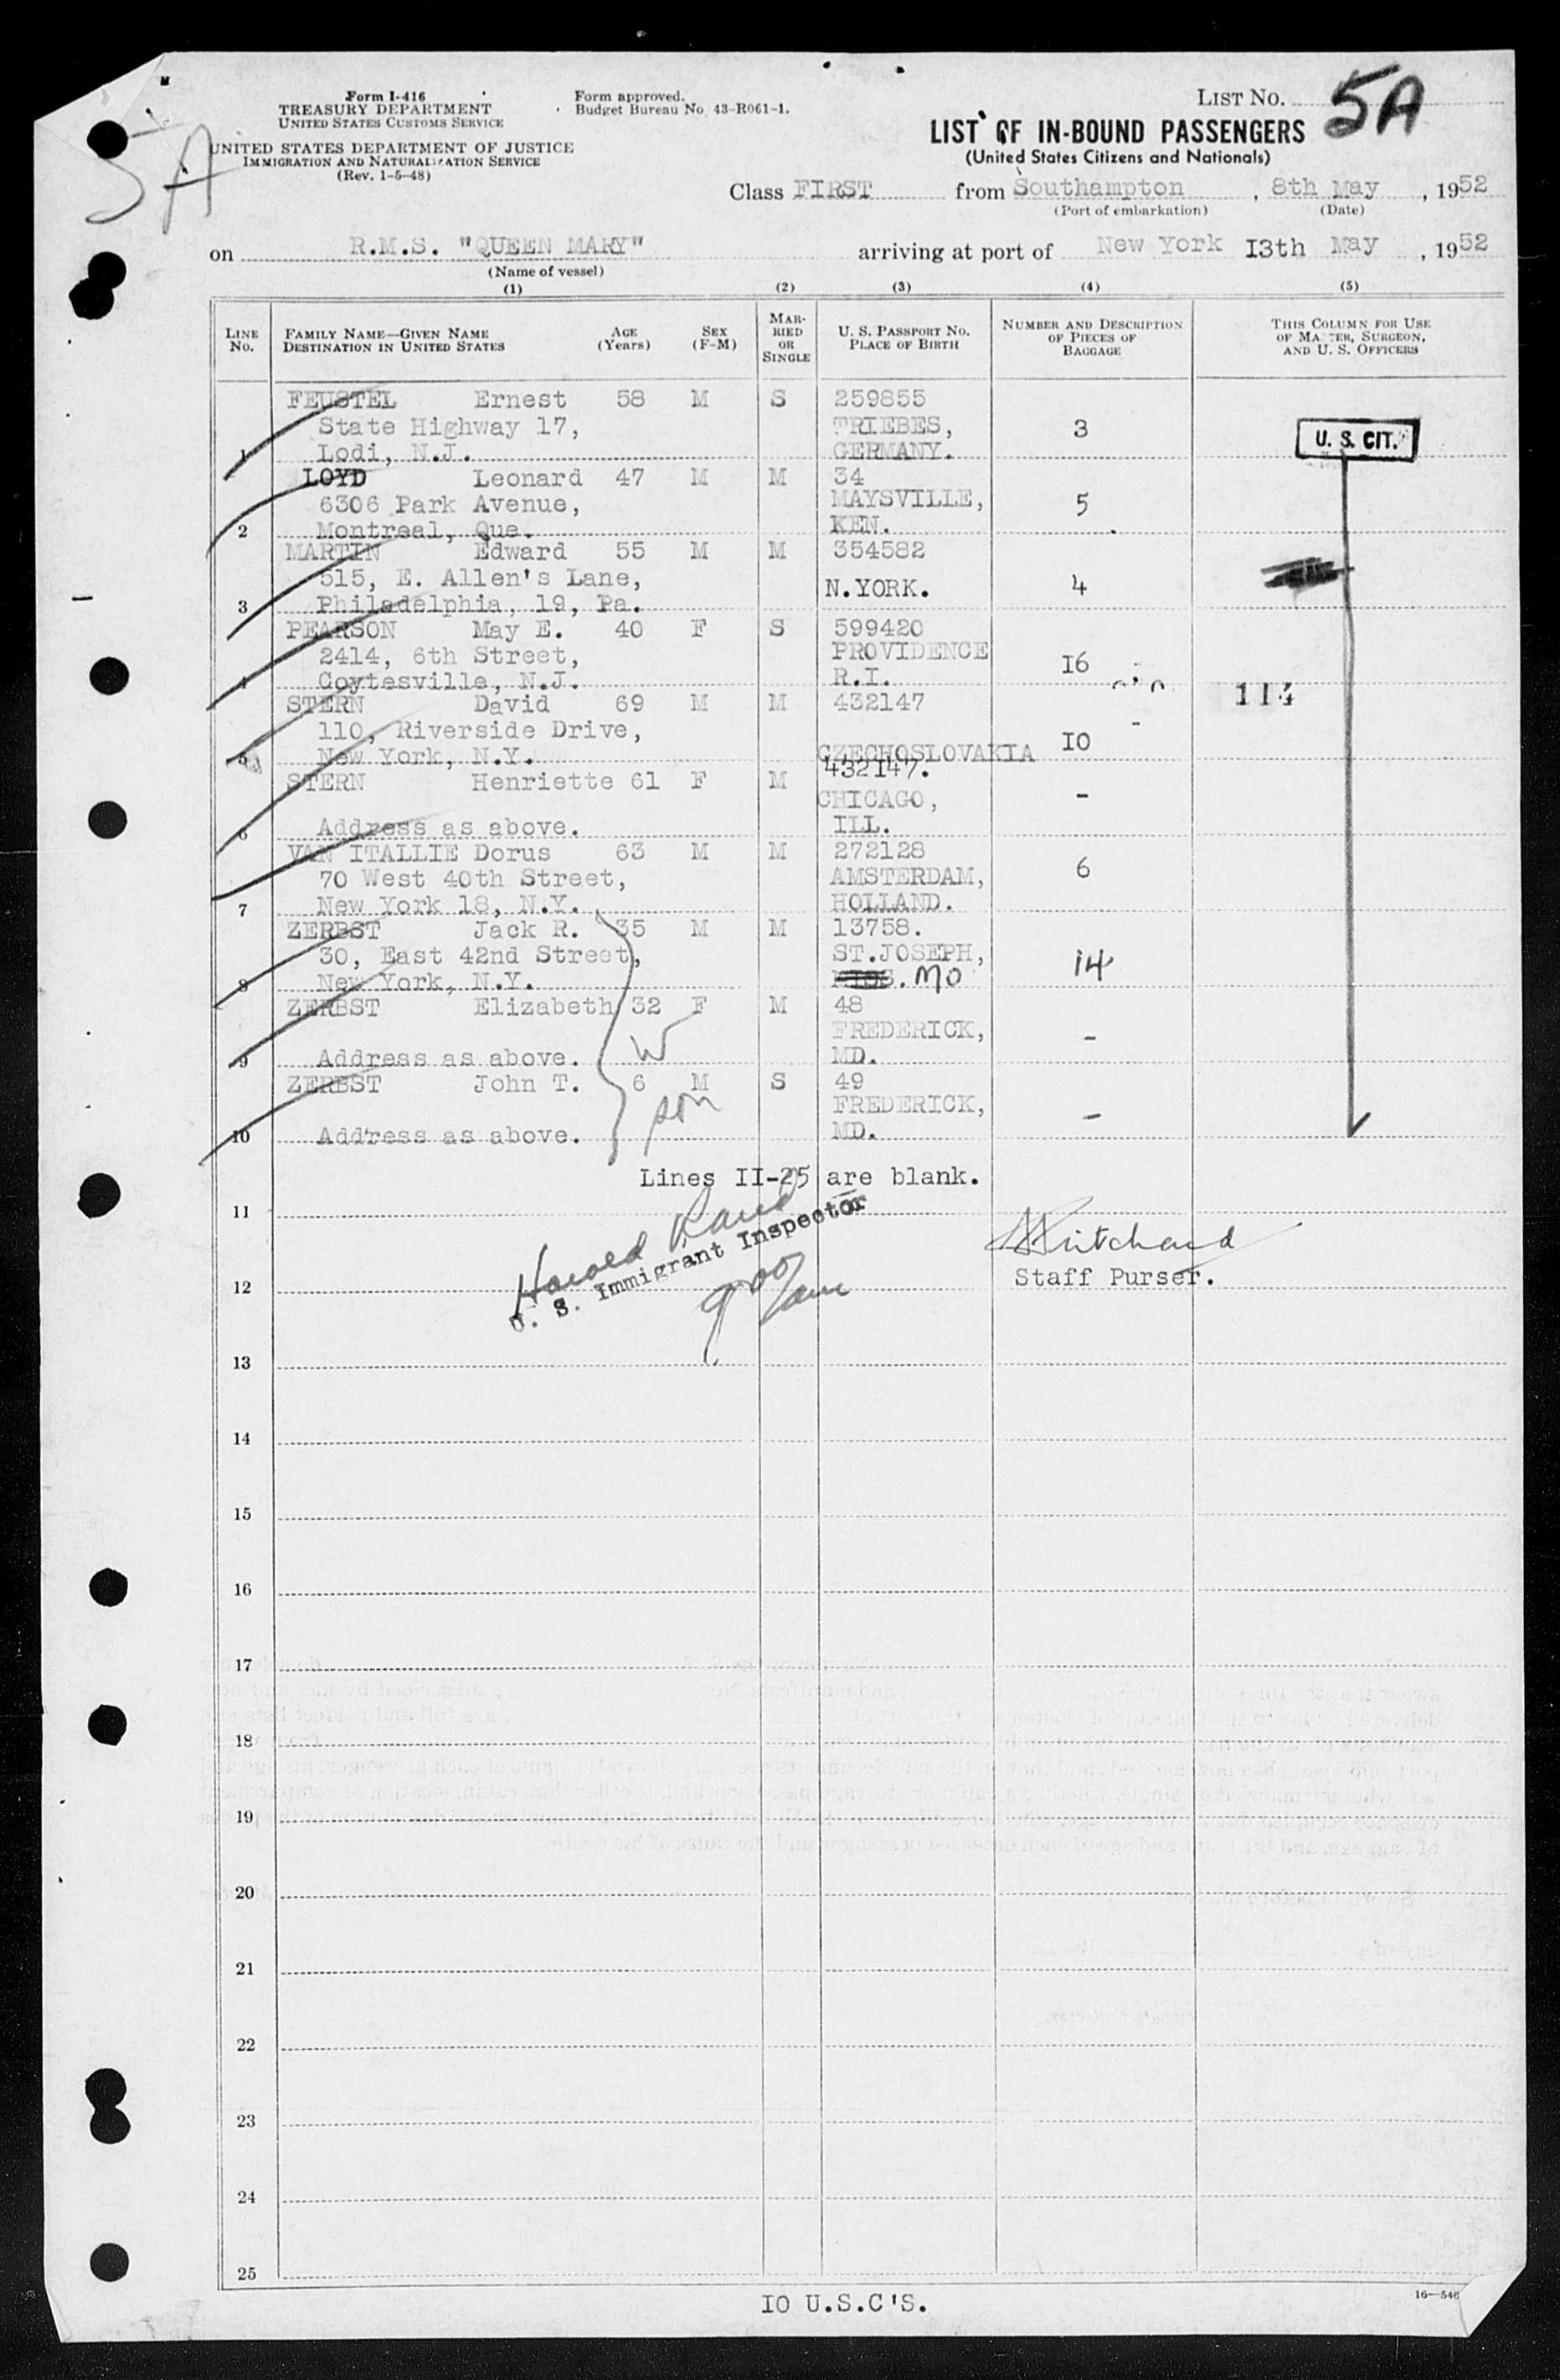 Form I-416
TREASURY DEPARTMENT
UNITED STATES CUSTOMS SERVICE
UNITED STATES DEPARTMENT OF JUSTICE
IMMIGRATION AND NATURALIZATION SERVICE
(Rev. 1-5-48)
5A
Form approved.
Budget Bureau No. 43-R061-1.
LIST NO. 5A
LIST OF IN-BOUND PASSENGERS
(United States Citizens and Nationals)
Class FIRST from Southampton, 8th May, 1952
(Port of embarkation) (Date)
on R.M.S. "QUEEN MARY" arriving at port of New York 13th May, 1952
(Name of vessel)
(1) (2) (3) (4) (5)
LINE NO.
FAMILY NAME—GIVEN NAME
DESTINATION IN UNITED STATES
AGE (Years)
SEX (F-M)
MARRIED OR SINGLE
U. S. PASSPORT NO.
PLACE OF BIRTH
NUMBER AND DESCRIPTION OF PIECES OF BAGGAGE
THIS COLUMN FOR USE OF MASTER, SURGEON, AND U. S. OFFICERS
FEUSTEL Ernest 58 M S 259855
State Highway 17, TRIEBES, 3
1 Lodi, N.J. GERMANY.
U. S. CIT.
LOYD Leonard 47 M M 34
6306 Park Avenue, MAYSVILLE, 5
2 Montreal, Que. KEN.
MARTIN Edward 55 M M 354582
515, E. Allen's Lane, N.YORK. 4
3 Philadelphia, 19, Pa.
PEARSON May E. 40 F S 599420
2414, 6th Street, PROVIDENCE 16
4 Coytesville, N.J. R.I.
114
STERN David 69 M M 432147
110, Riverside Drive, 10
5 New York, N.Y. CZECHOSLOVAKIA
STERN Henriette 61 F M 432147.
CHICAGO, -
6 Address as above. ILL.
VAN ITALLIE Dorus 63 M M 272128
70 West 40th Street, AMSTERDAM, 6
7 New York 18, N.Y. HOLLAND.
ZERBST Jack R. 35 M M 13758.
30, East 42nd Street, ST.JOSEPH, 14
8 New York, N.Y. MO
ZERBST Elizabeth 32 F M 48
FREDERICK, -
9 Address as above. W MD.
ZERBST John T. 6 M S 49
son FREDERICK, -
10 Address as above. MD.
Lines II-25 are blank.
11
Harold
U. S. Immigrant Inspector
9 00 am
Pritchard
Staff Purser.
12
13
14
15
16
17
18
19
20
21
22
23
24
25
10 U.S.C'S.
16—546